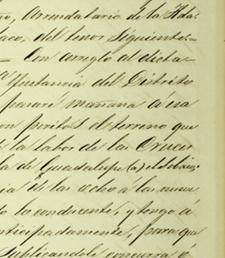 no, Arrendatario de la Hda.
del tenor siguiente.=
= Con arreglo al dicta-
Instancia del Distrito
pasaré mañana á esa
con peritos el terreno que
la labor de las Cruces
la de Guadalupe (a) el
de las ocho a las nueve
lo conducente, y tengo á
anticipadamente, para que
suplicandole concurra á